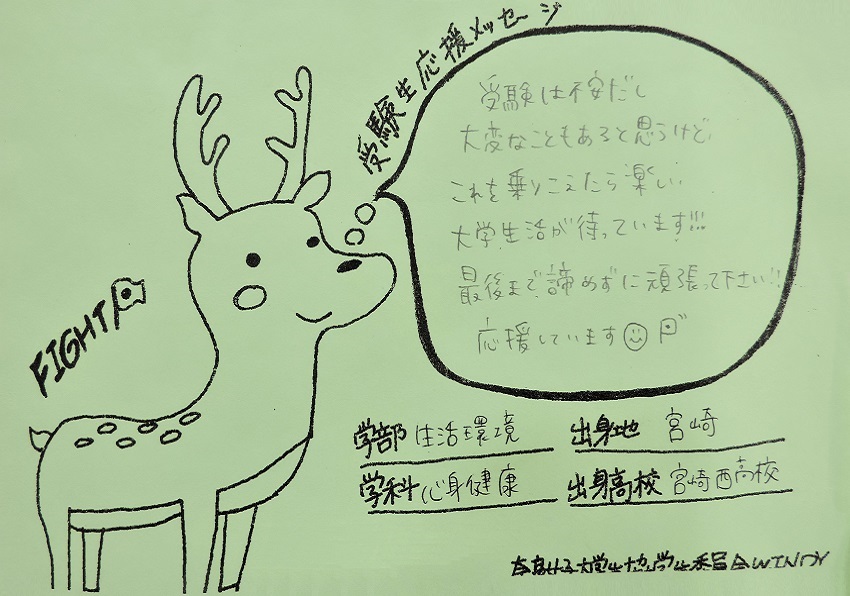 受験生応援メッセージ
受験は不安だし
大変なこともあると思うけど、
これを乗りこえたら楽しい
大学生活が待っています!!!
最後まで諦めずに頑張って下さい!!
応援しています
FIGHT
学部 生活環境
出身地 宮崎
学科 心身健康
出身高校 宮崎西高校
奈良女子大学生協学生委員会WINDY